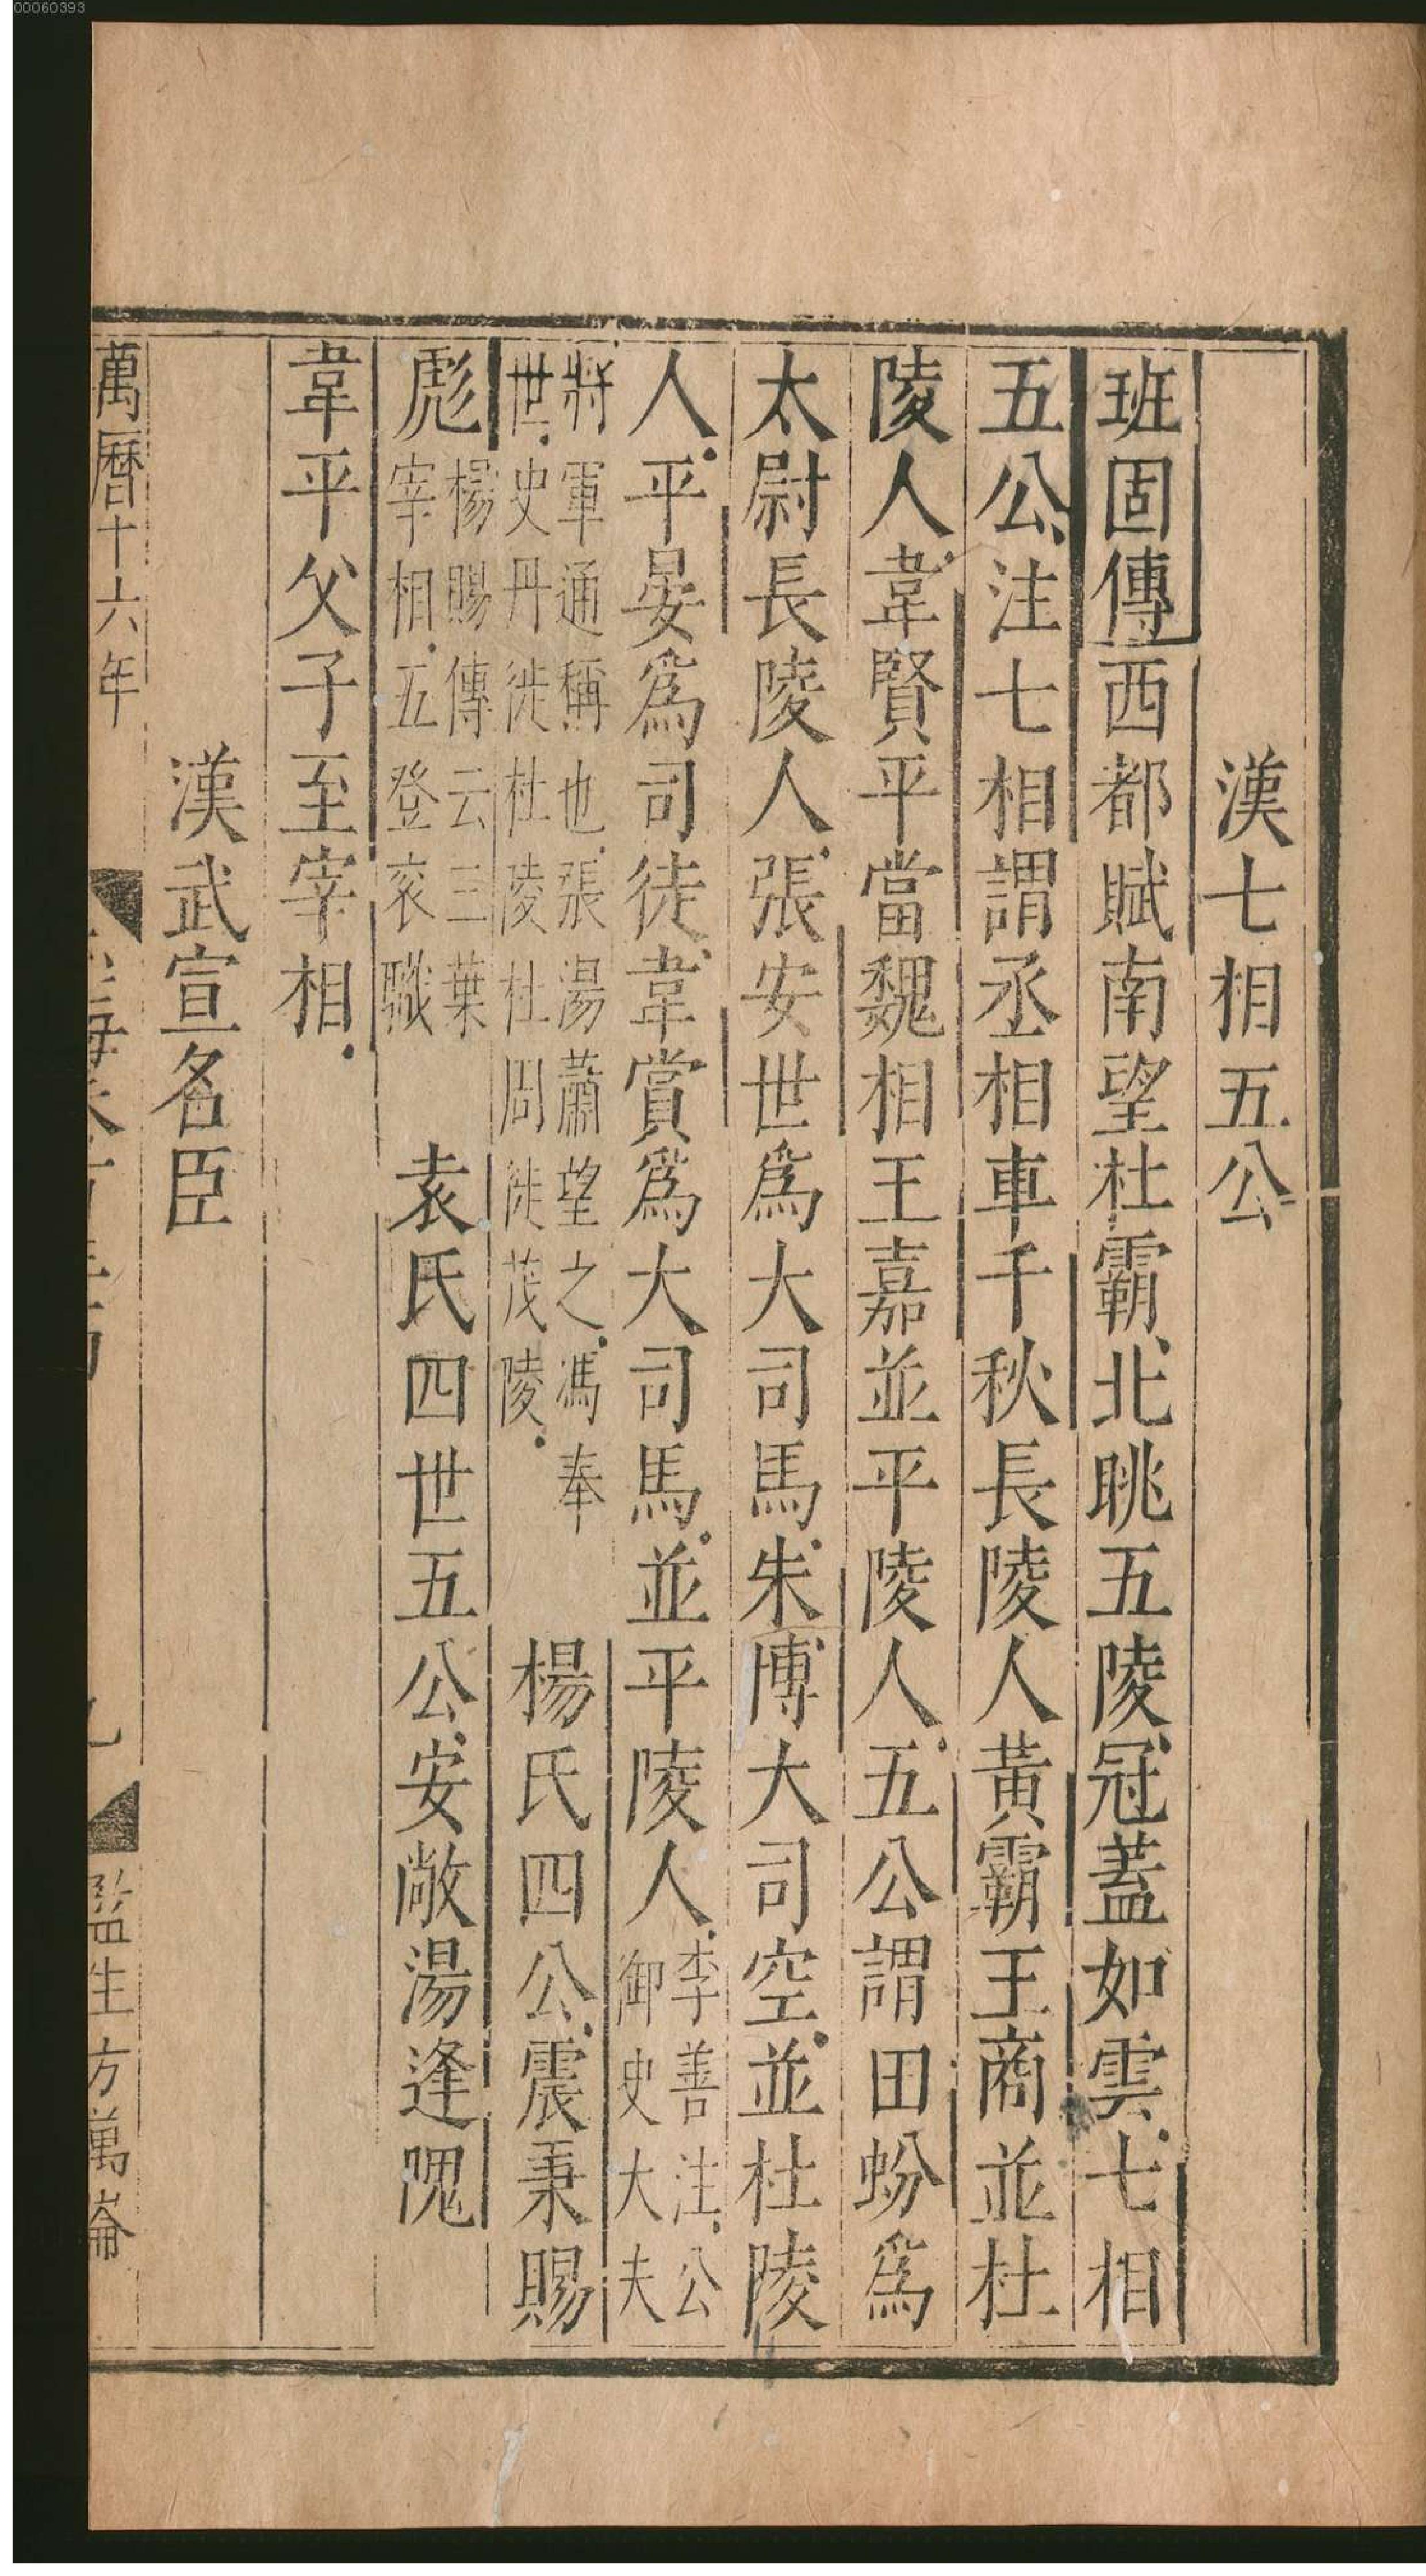 漢七相五公
班固傳西都賦南望杜霸北眺五陵冠蓋如雲七相
五公注七相謂丞相車千秋長陵人黃霸王商並杜
陵人韋賢平當魏相王嘉並平陵人五公謂田蚡爲
太尉長陵人張安世爲大司馬朱博大司空並杜陵
人平晏爲司徒韋賞爲大司馬並平陵人李善注公御史大夫
將軍通稱也張湯蕭望之馮奉世史丹徙杜陵杜周徙茂陵 楊氏四公震秉賜
彪楊賜傳云三葉宰相五登衮職 袁氏四世五公安敞湯逢隗
韋平父子至宰相
漢武宣名臣
萬曆十六年
監生方萬崙
00060393